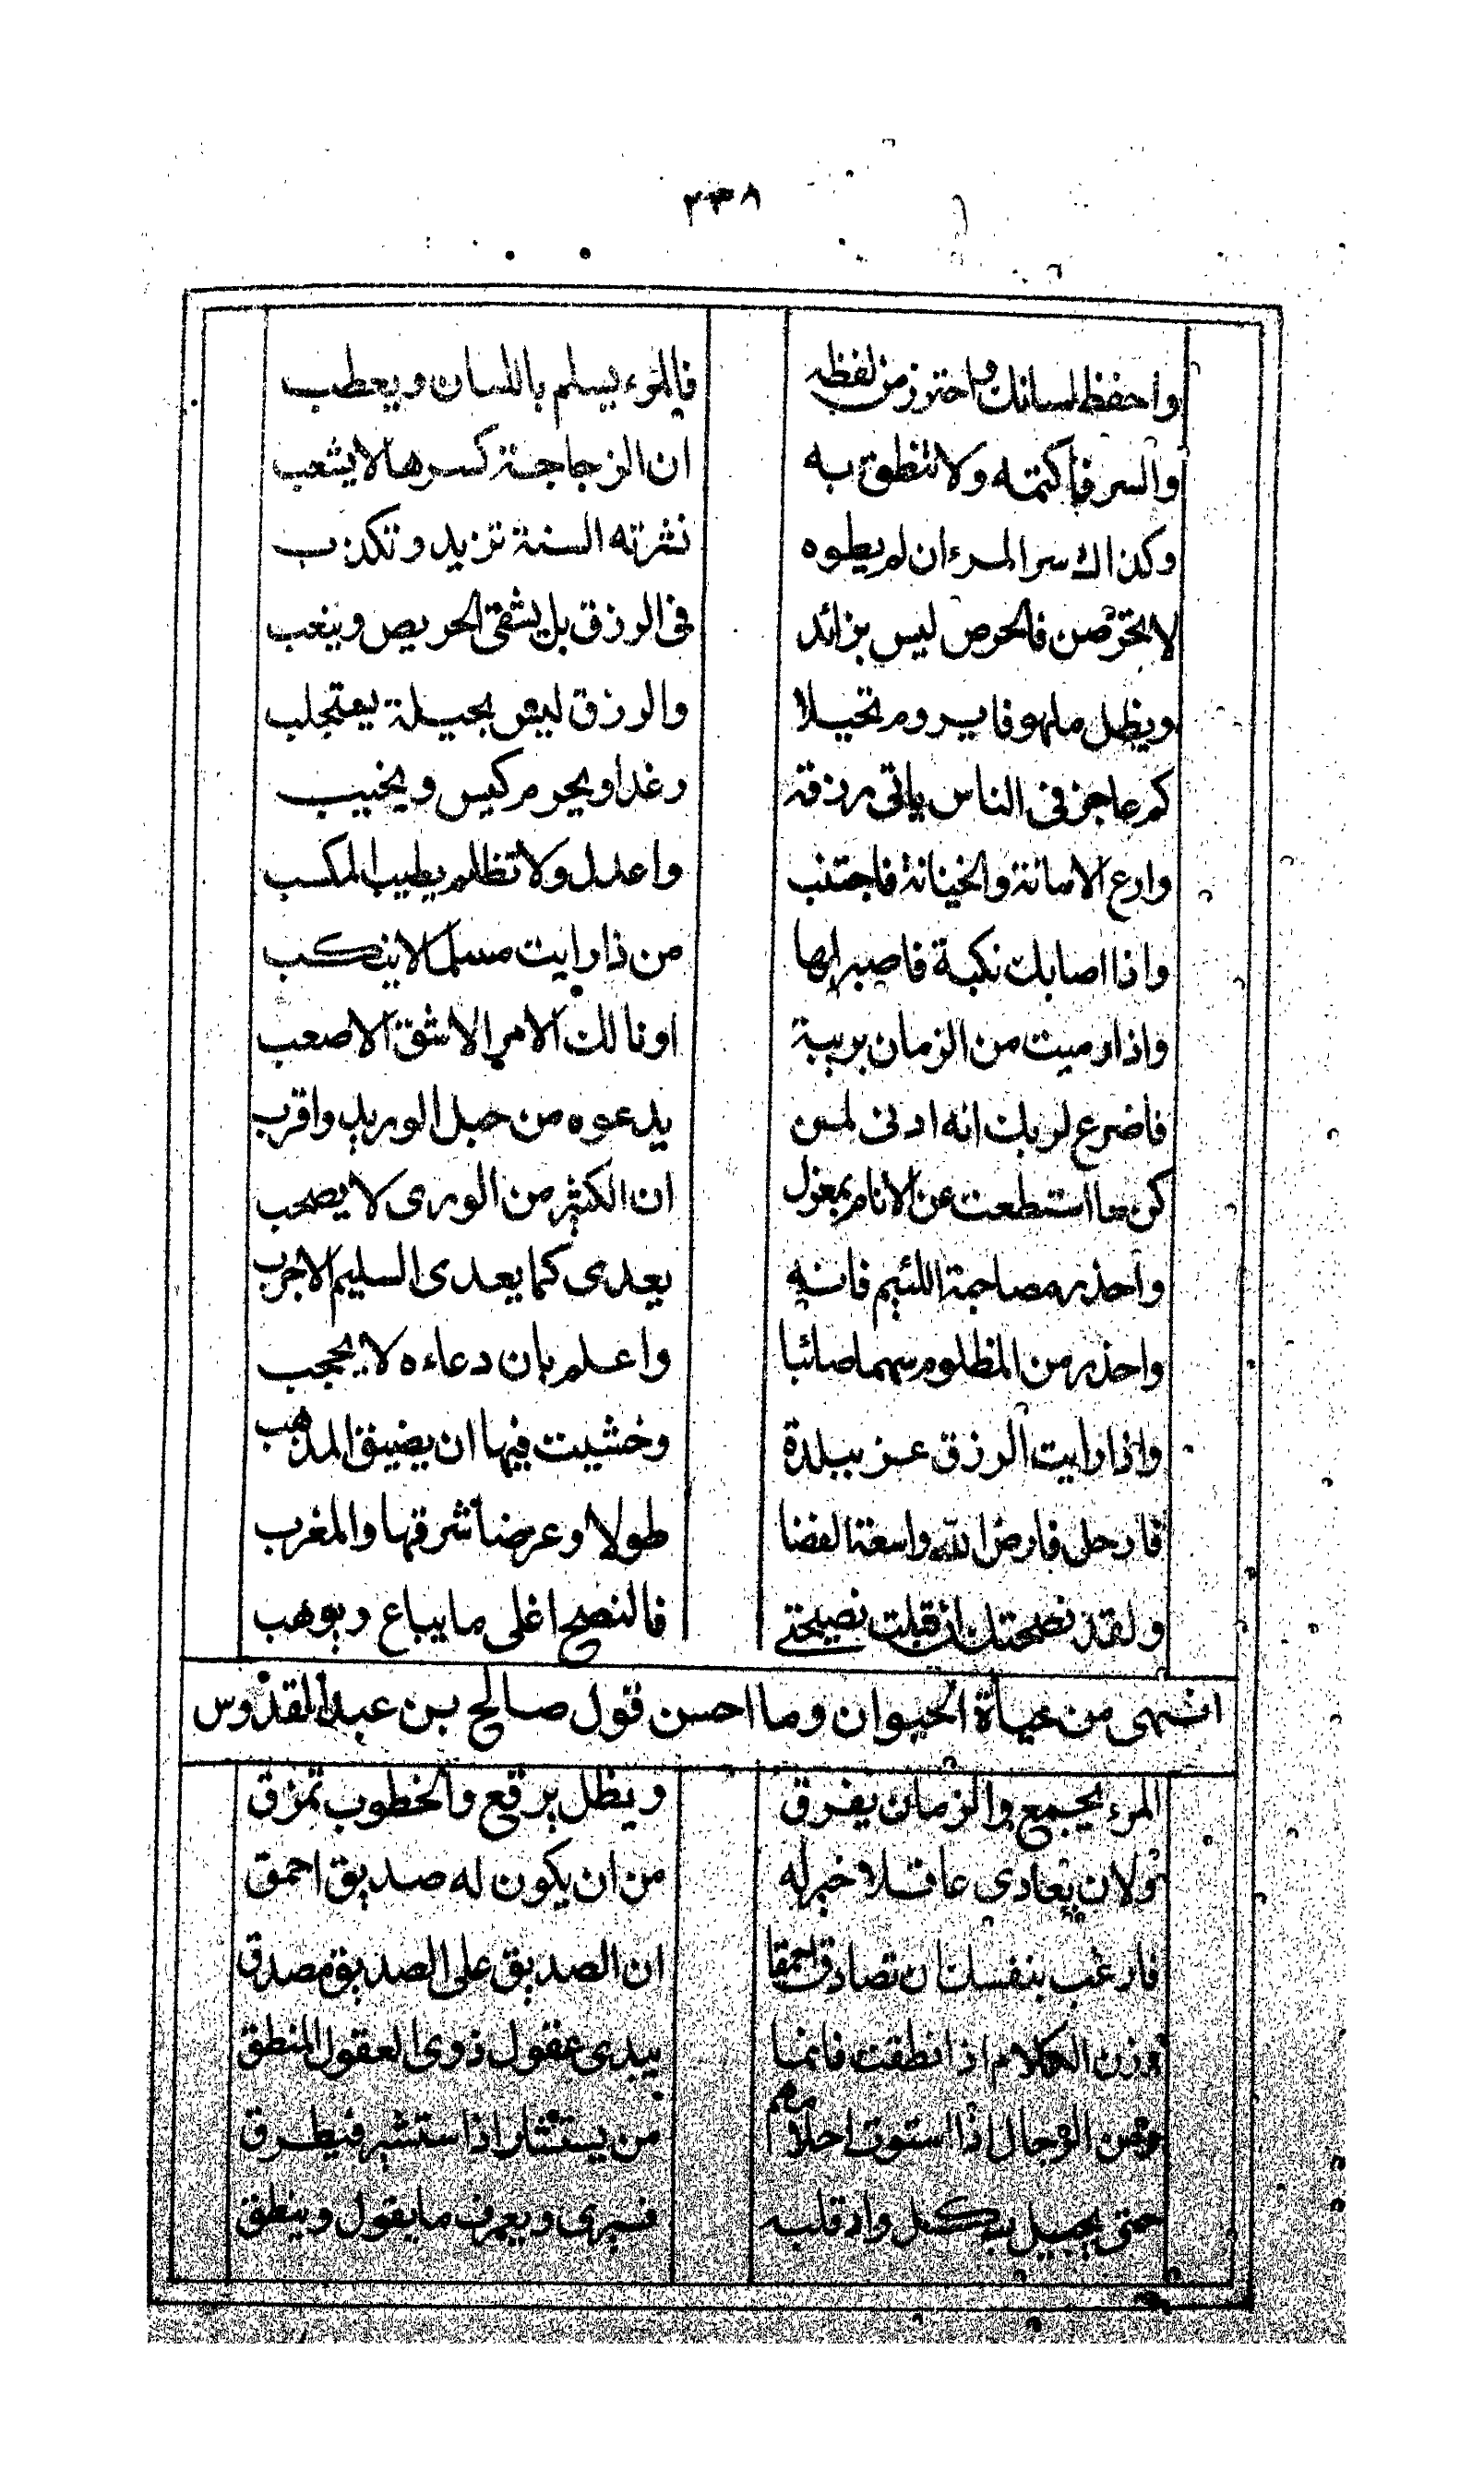 ٢٣٨
واحفظ لسانك واحترز من لفظه فالمرء يسلم باللسان ويعطب
والسر فاكتمه ولا تنطق به ان الزجاجة كسرها لا يشعب
وكذاك سر المرء ان لم يطوه نشرته السنة تزيد وتكذب
لا تحرصن فالحرص ليس بزائد فى الرزق بل يشقى الحريص ويتعب
ويظل ملهوفا يروم تحيلا والرزق ليس بحيلة يستجلب
كم عاجز فى الناس ياتى رزقه رغدا ويحرم كيس ويخيب
وارع الامانة والخيانة فاجتنب واعدل ولا تظلم يطيب المكسب
واذا اصابك نكبة فاصبر لها من ذا رايت مسلما لا ينكب
واذا رميت من الزمان بريبة او نالك الامر الاشق الاصعب
فاضرع لربك انه ادنى لمن يدعوه من حبل الوريد واقرب
كن ما استطعت عن الانام بمعزل ان الكثير من الورى لا يصحب
واحذر مصاحبة اللئيم فانه يعدى كما يعدى السليم الاجرب
واحذر من المظلوم سهما صائبا واعلم بان دعاءه لا يحجب
واذا رايت الرزق عز ببلدة وخشيت فيها ان يضيق المذهب
فارحل فارض الله واسعة الفضا طولا وعرضا شرقها والمغرب
ولقد نصحتك ان قبلت نصيحتى فالنصح اغلى ما يباع ويوهب
انتهى من حياة الحيوان وما احسن قول صالح بن عبد القدوس
المرء يجمع والزمان يفرق ويظل يرقع والخطوب تمزق
ولان يعادي عاقلا خير له من ان يكون له صديق احمق
فارغب بنفسك ان تصادق احمقا ان الصديق على الصديق مصدق
وزن الكلام اذا نطقت فانما يبدى عقول ذوى العقول المنطق
ومن الرجال اذا استوت احلامهم من يستشار اذا استشير فيطرق
حتى يجيل بكل واد قلبه فيرى ويعرف ما يقول وينطق